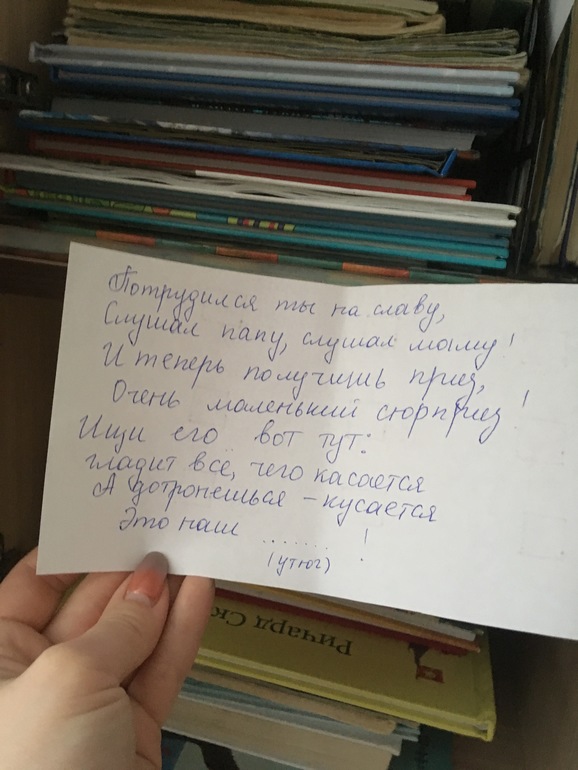 Потрудился ты на славу,
Слушал папу, слушал маму!
И теперь получишь приз,
Очень маленький сюрприз!
Ищи его вот тут:
гладит всё, чего касается
А дотронешься – кусается
Это наш ....... !
(утюг)
Ричард Ск